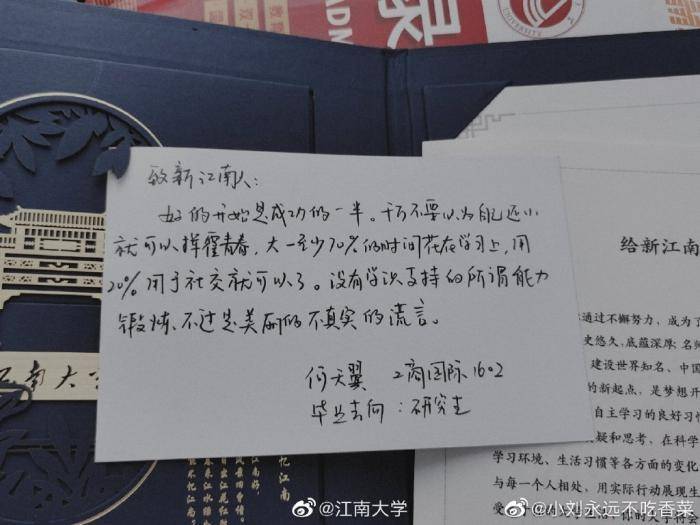 录
ADM
UNIVERSITY
致新江南人：
好的开始是成功的一半。千万不要以为自己还小
就可以挥霍青春，大一至少70%的时间花在学习上，用
20%用于社交就可以了。没有学识支持的所谓能力
锻炼，不过是美丽的不真实的谎言。
何天翼 工商国际1602
毕业去向：研究生
江南大学
忆江南
江南好，
风景旧曾谙。
日出江花红胜火，
春来江水绿如蓝。
能不忆江南？
给新江南
通过不懈努力，成为了
史悠久，底蕴深厚；名师
建设世界知名、中国
的新起点，是梦想开
自主学习的良好习
疑和思考，在科学
学习环境、生活习惯等各方面的变化
与每一个人相处，用实际行动展现生
@江南大学
@小刘永远不吃香菜